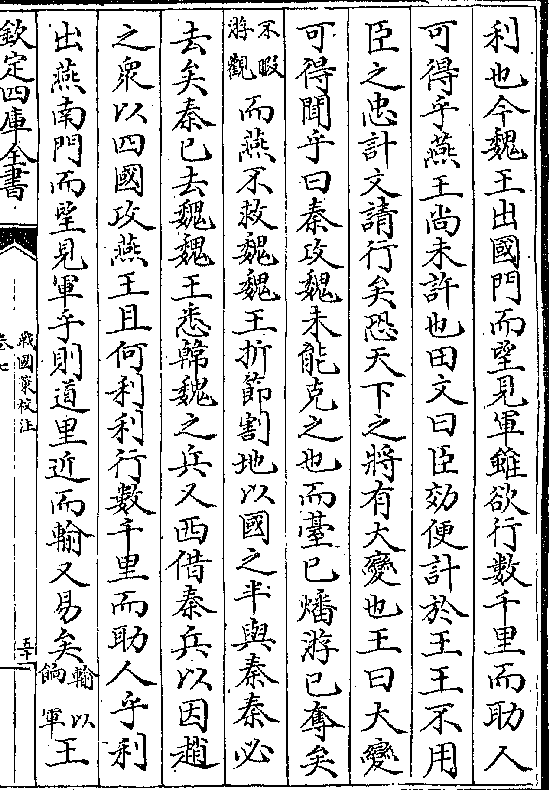 利也今魏王出國門而望見軍雖欲行數千里而助人
可得乎燕王尚未許也田文曰臣効便計於王王不用
臣之忠計文請行矣恐天下之將有大變也王曰大變
可得聞乎曰秦攻魏未能克之也而臺已燔游已奪矣
不暇游觀而燕不救魏魏王折節割地以國之半與秦秦必
去矣秦已去魏魏王悉韓魏之兵又西借秦兵以因趙
之衆以四國攻燕王且何利利行數千里而助人乎利
出燕南門而望見軍乎則道里近而輸又易矣輸以餉軍王
欽定四庫全書
戰國策校注
卷七